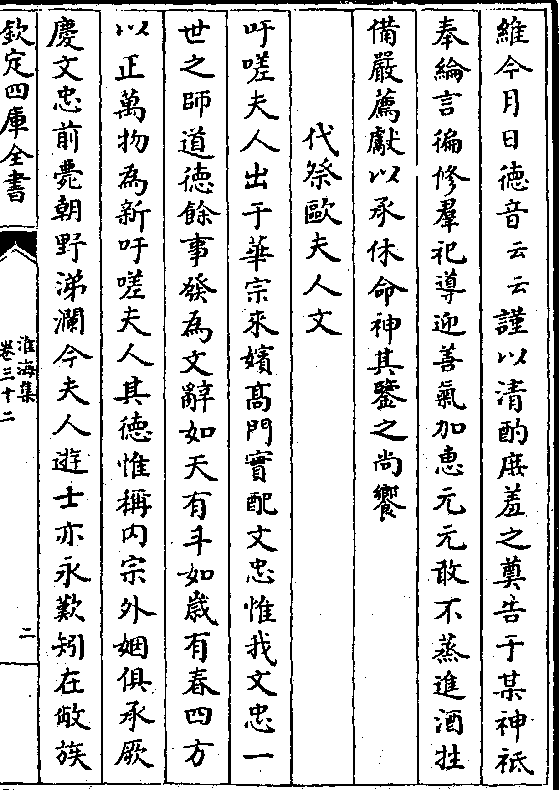 維今月日德音云云謹以清酌庶羞之奠告于某神祗
奉綸言徧修羣祀導迎善氣加惠元元敢不蒸進酒牲
備嚴薦獻以承休命神其鑒之尚饗
代祭歐夫人文
吁嗟夫人出于華宗來嬪髙門實配文忠惟我文忠一
世之師道德餘事發為文辭如天有斗如嵗有春四方
以正萬物為新吁嗟夫人其徳惟稱内宗外姻俱承厥
慶文忠前薨朝野涕瀾今夫人逝士亦永歎矧在敝族
欽定四庫全書
淮海集
卷三十二
二